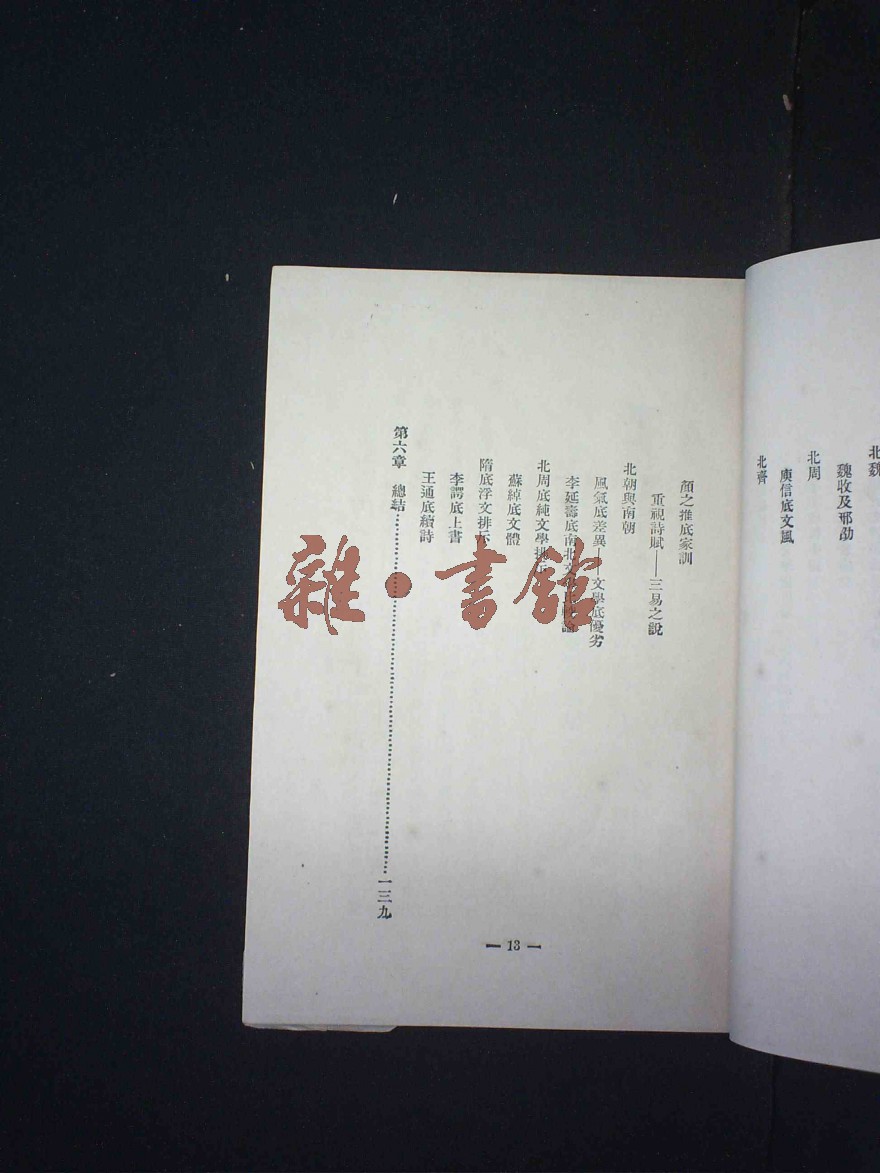 北魏
魏收及邢劭
北周
庾信底文風
北齊
顏之推底家訓
重視詩賦——三易之說
北朝與南朝
風氣底差異——文學底優劣
李延壽底南北文
北周底純文學排
蘇綽底文體
隋底浮文排示
李諤底上書
王通底續詩
第六章 總結……一三九
— 13 —
雜·書館